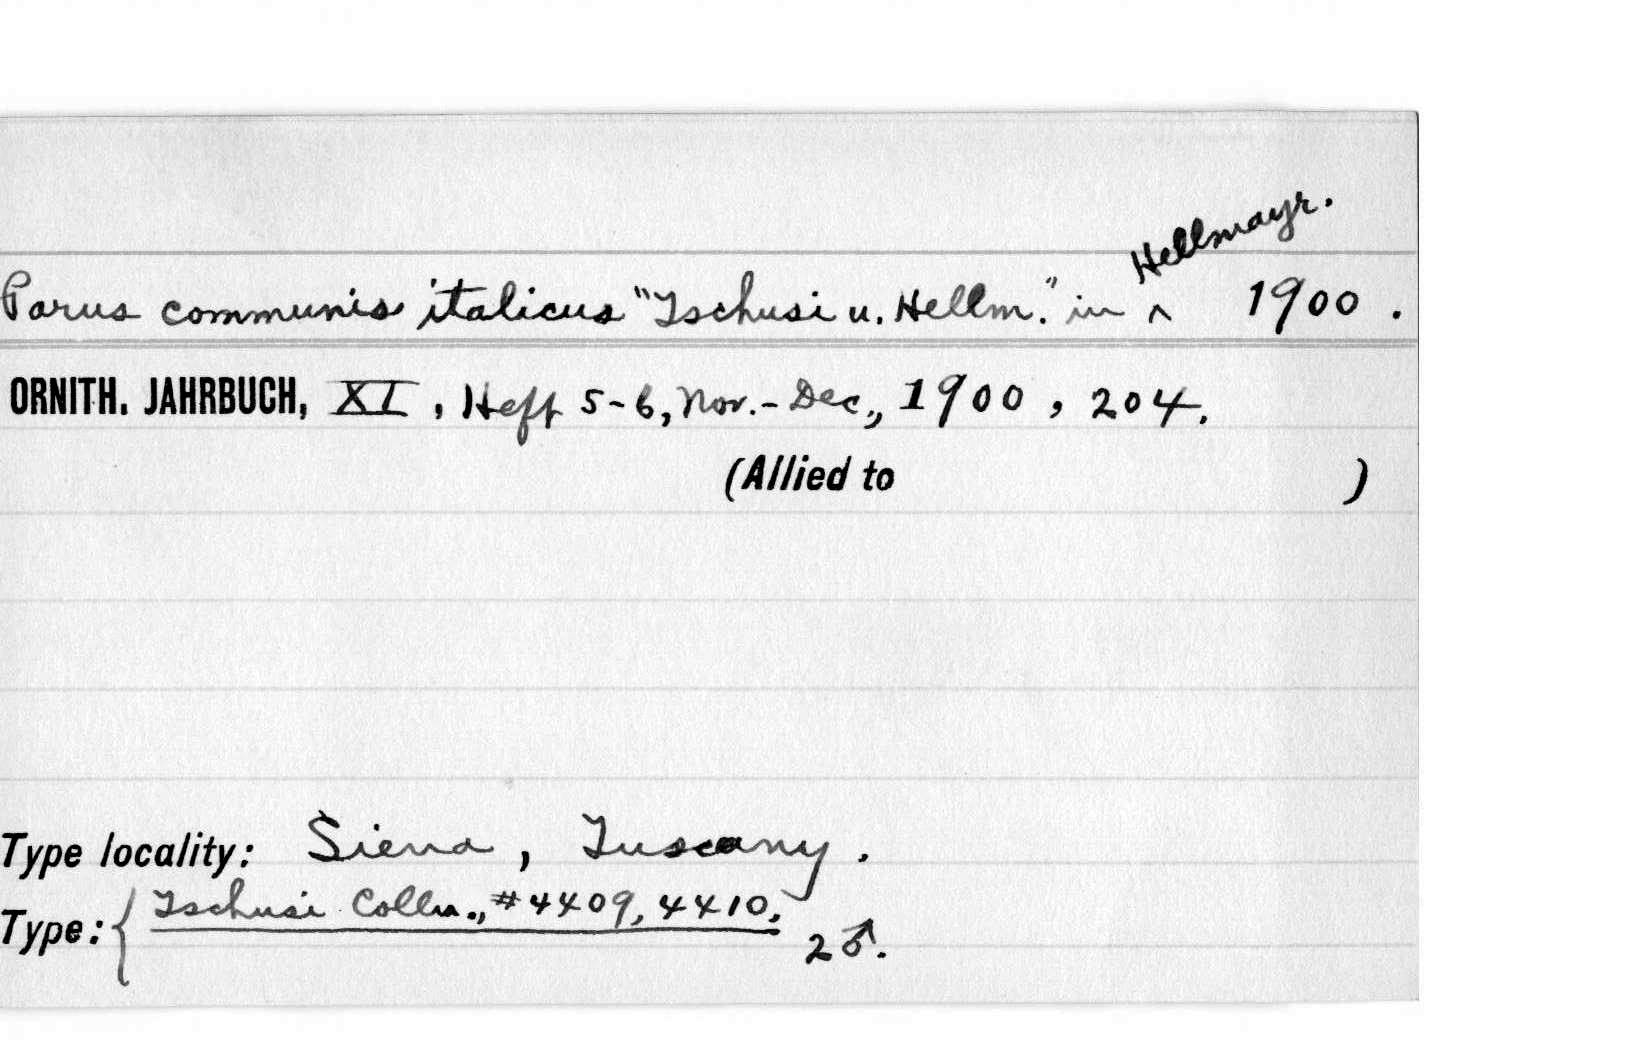 Parus communis italicus "Tschusi u. Hellm." in ^ Hellmayr. 1900.
ORNITH. JAHRBUCH, XI, Heft 5-6, Nov.-Dec., 1900, 204.
(Allied to )
Type locality: Siena, Tuscany.
Type: { Tschusi Colln., #4409, 4410,
2♂.